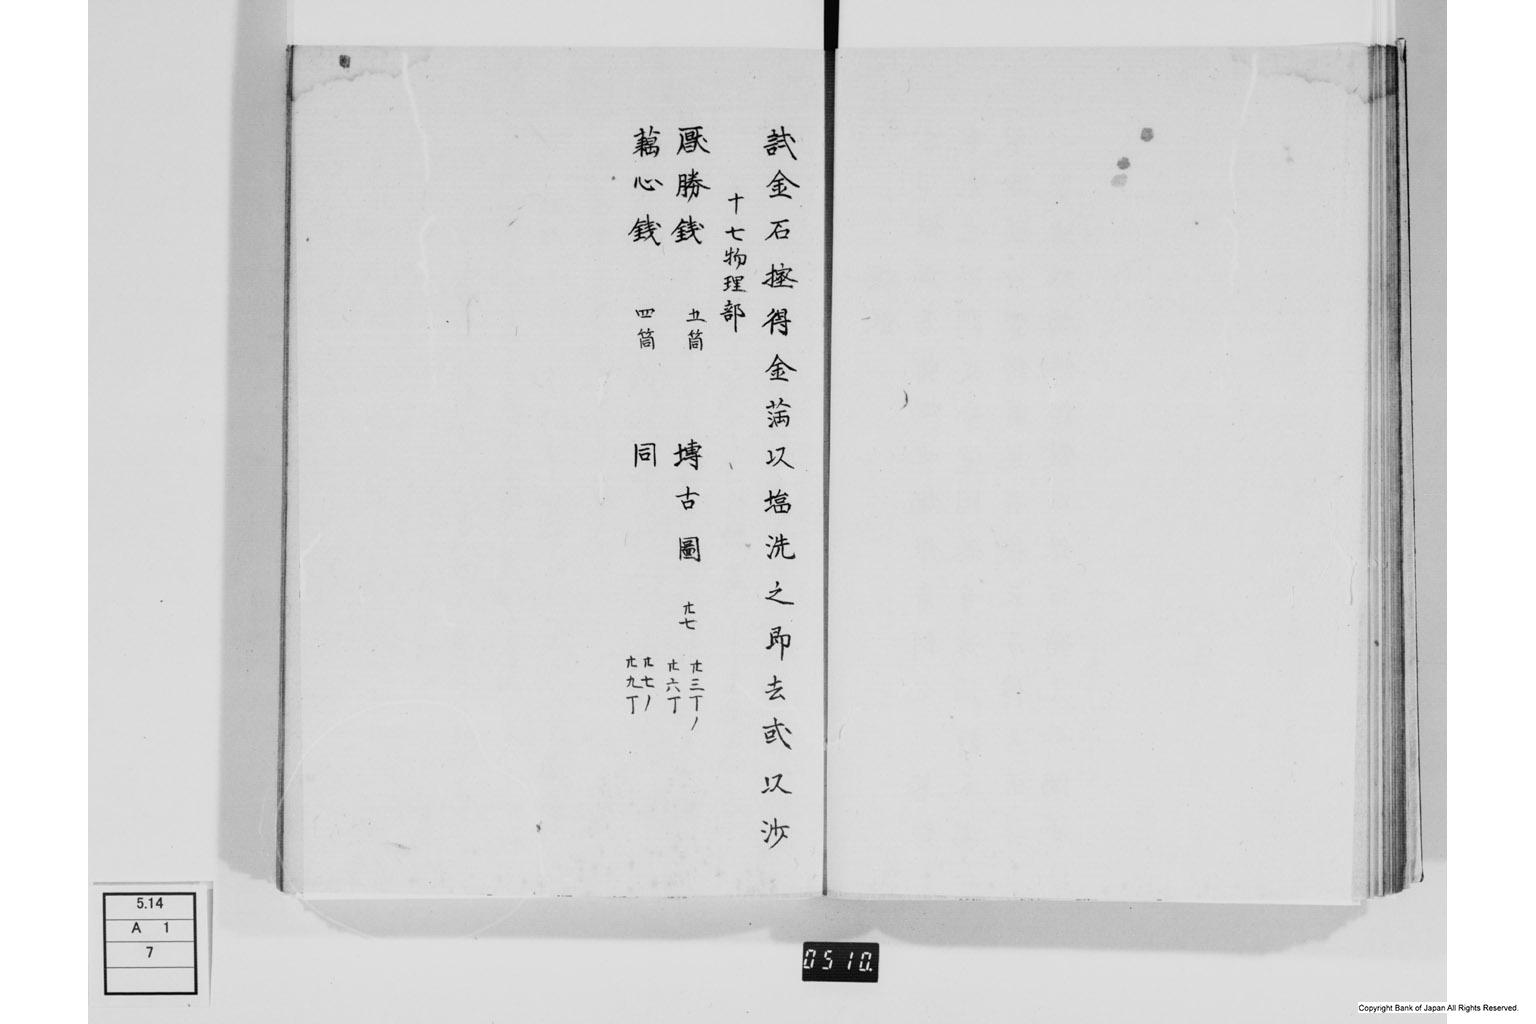 試金石擦得金満以塩洗之即去或以沙
十七物理部
厭勝銭 五筒 博古圖 廿七 廿三丁ノ廿六丁
藕心銭 四筒 同 廿七ノ廿九丁
5.14
A 1
7
0510.
Copyright Bank of Japan All Rights Reserved.